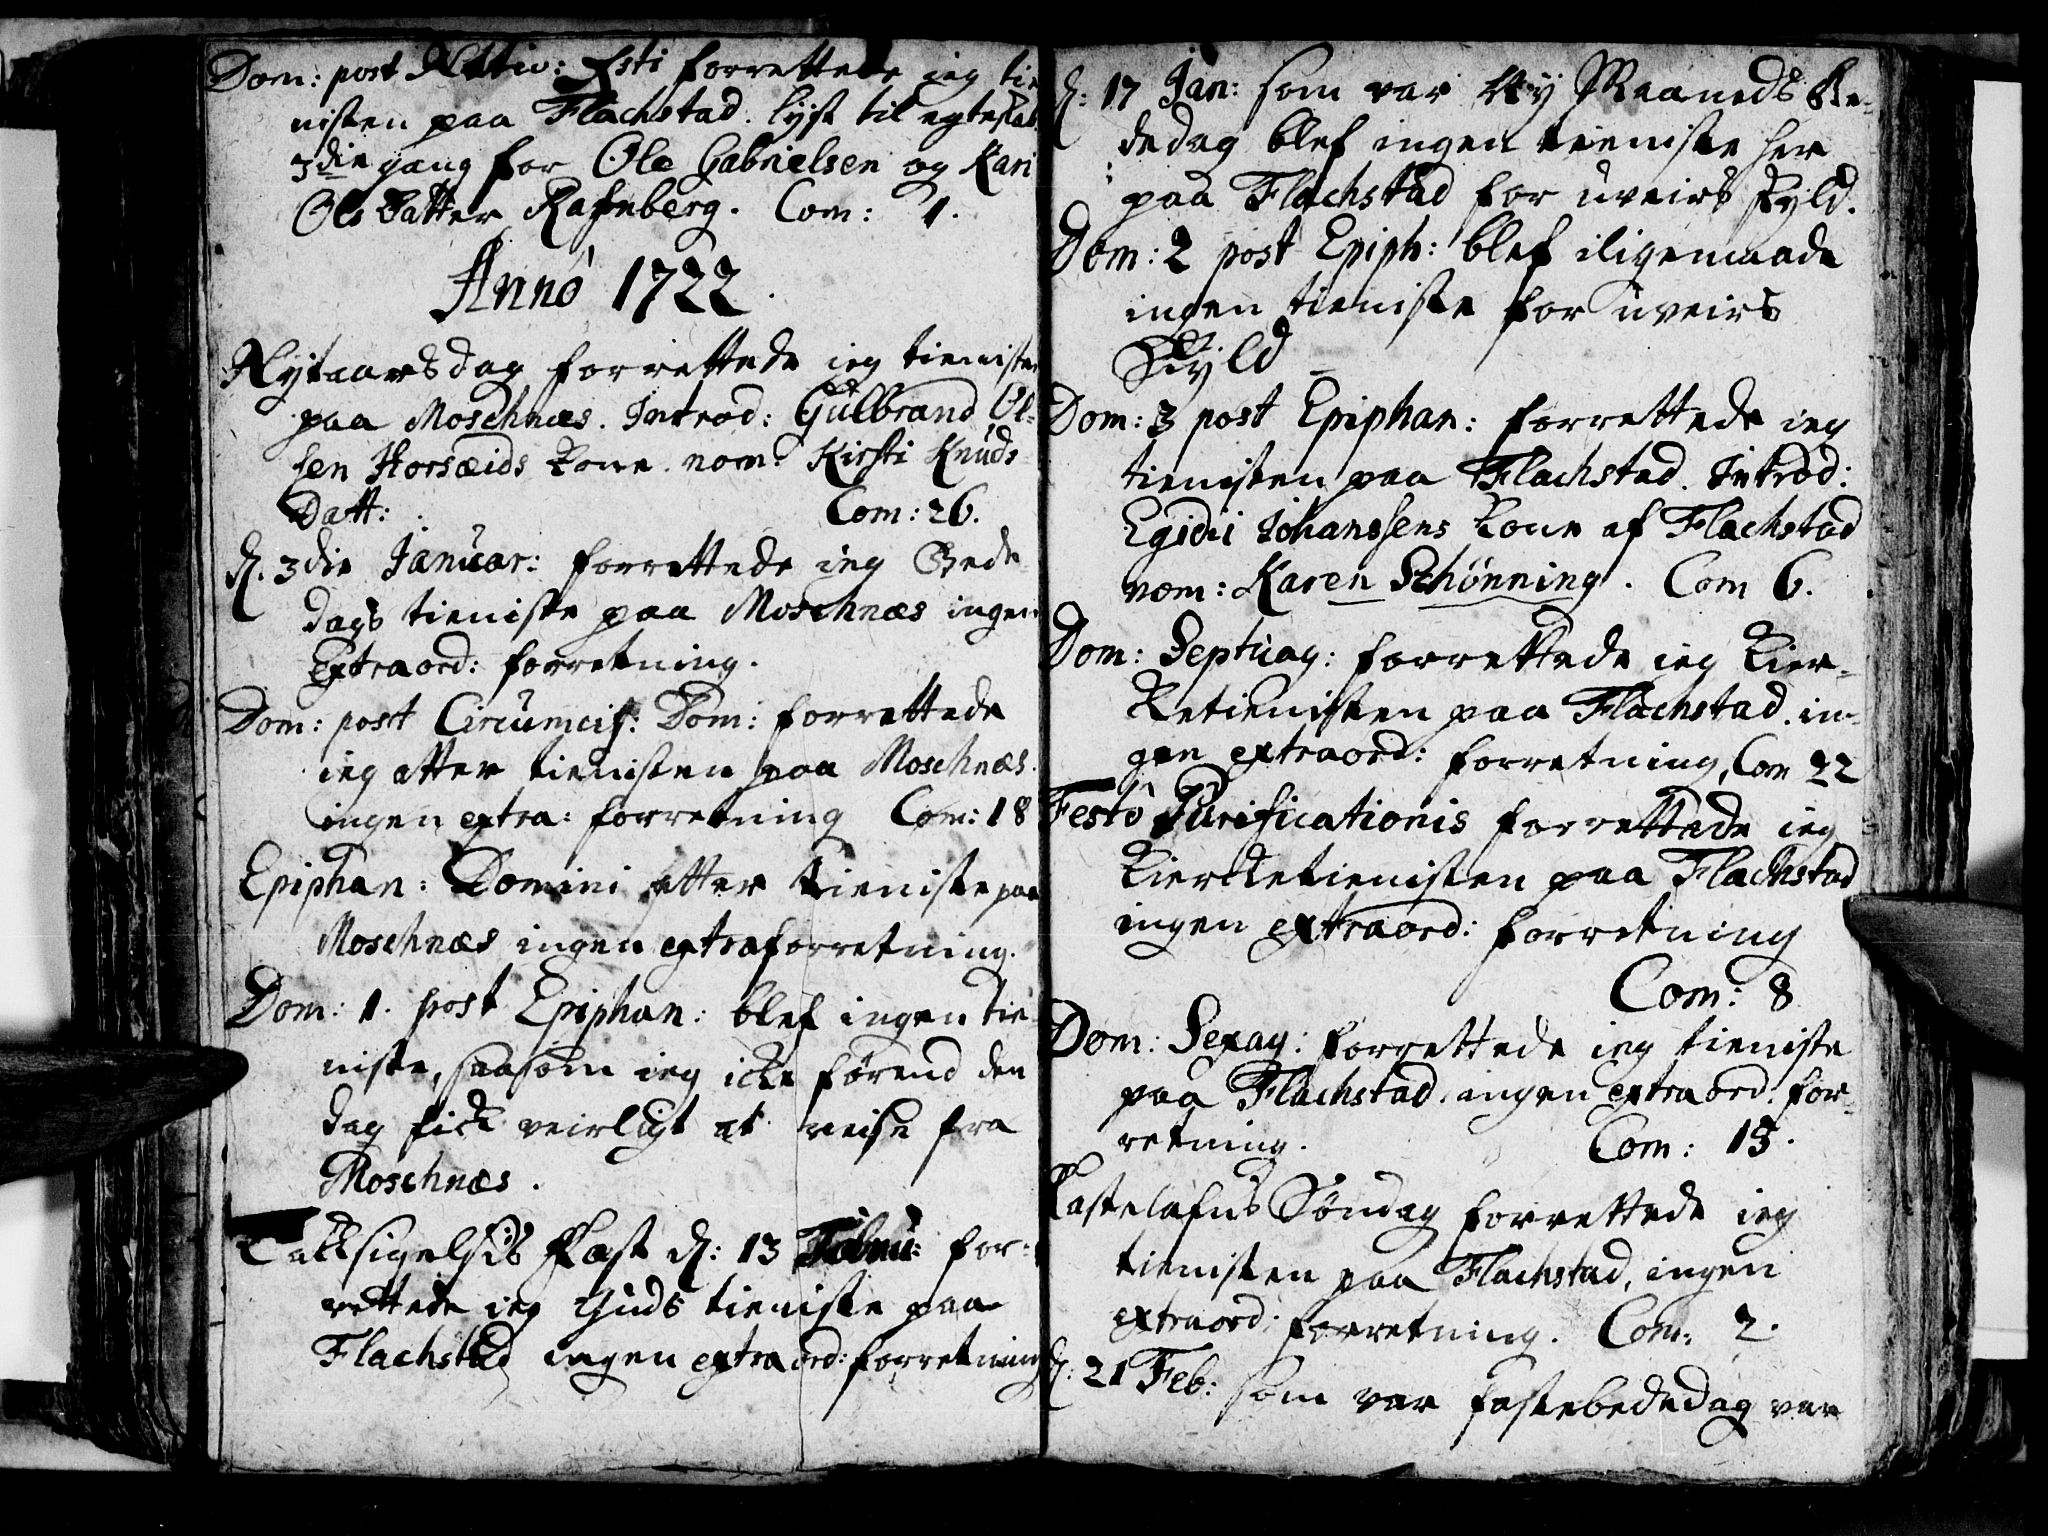 Dom: post Nativ: Xsti forrettede ieg tie
nisten paa Flachstad. lyst til egteskab
3die gang for Ole Gabrielsen og Kari
Ols Datter Rafnberg. Com: 1.
Anno 1722.
Nytaarsdag forrettede ieg tienisten
paa Moschnæs. Introd: Gulbrand Ol-
sen Horsæids kone nom: Kirsti Knuds
Datt: Com: 26.
d. 3die Januar: forrettede ieg Bede
dags tieniste paa Moschnæs ingen
Extraord: forretning.
Dom: post Circumcis: Dom: forrettede
ieg atter tienisten paa Moschnæs.
ingen extra: forretning Com: 18
Epiphan: Domini atter tieniste paa
Moschnæs ingen extraforretning.
Dom: 1. post Epiphan: blef ingen tie-
niste, saasom ieg icke førend den
dag fick veirligt at reise fra
Moschnæs.
Tacksigelsis fæst d: 13 for-
rettede ieg Guds tieniste paa
Flachstad ingen extraord: forretning
d: 17 Jan: som var Ny Maaneds Be-
dedag blef ingen tieniste her
paa Flachstad for uveirs skyld.
Dom: 2 post Epiph: blef iligemaade
ingen tieniste for uveirs
Skyld
Dom: 3 post Epiphan: forrettede ieg
tienisten paa Flachstad. Introd:
Egidii Johanssens kone af Flachstad
nom: Karen Schønning. Com 6.
Dom: Septuag: forrettede ieg kier-
ketienisten paa Flachstad. in-
gen extraord: forretning, Com 22
Festo Purificationis forrettede ieg
kierketienisten paa Flachstad
ingen extraord: forretning
Com: 8
Dom: Sexag: forrettede ieg tieniste
paa Flachstad, ingen extraord: for-
retning. Com: 18.
Fastelafns Søndag forrettede ieg
tienisten paa Flachstad, ingen
extraord: forretning. Com: 2.
d: 21 Feb: som var fastebededag var